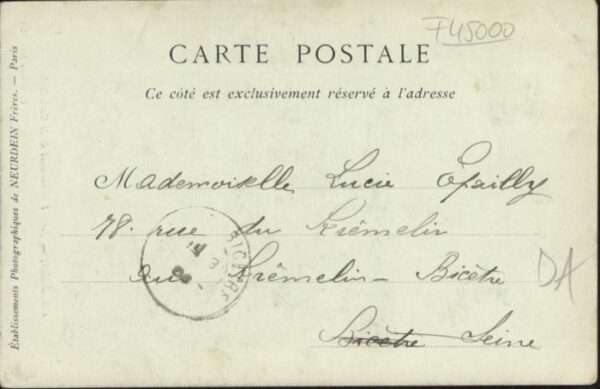 F45000
CARTE POSTALE
Ce côté est exclusivement réservé à l'adresse
Mademoiselle Lucie
78. rue du Krêmelin
au Krêmelin - Bicêtre
Bicêtre Seine
DA
Établissements Photographiques de NEURDEIN Frères. — Paris